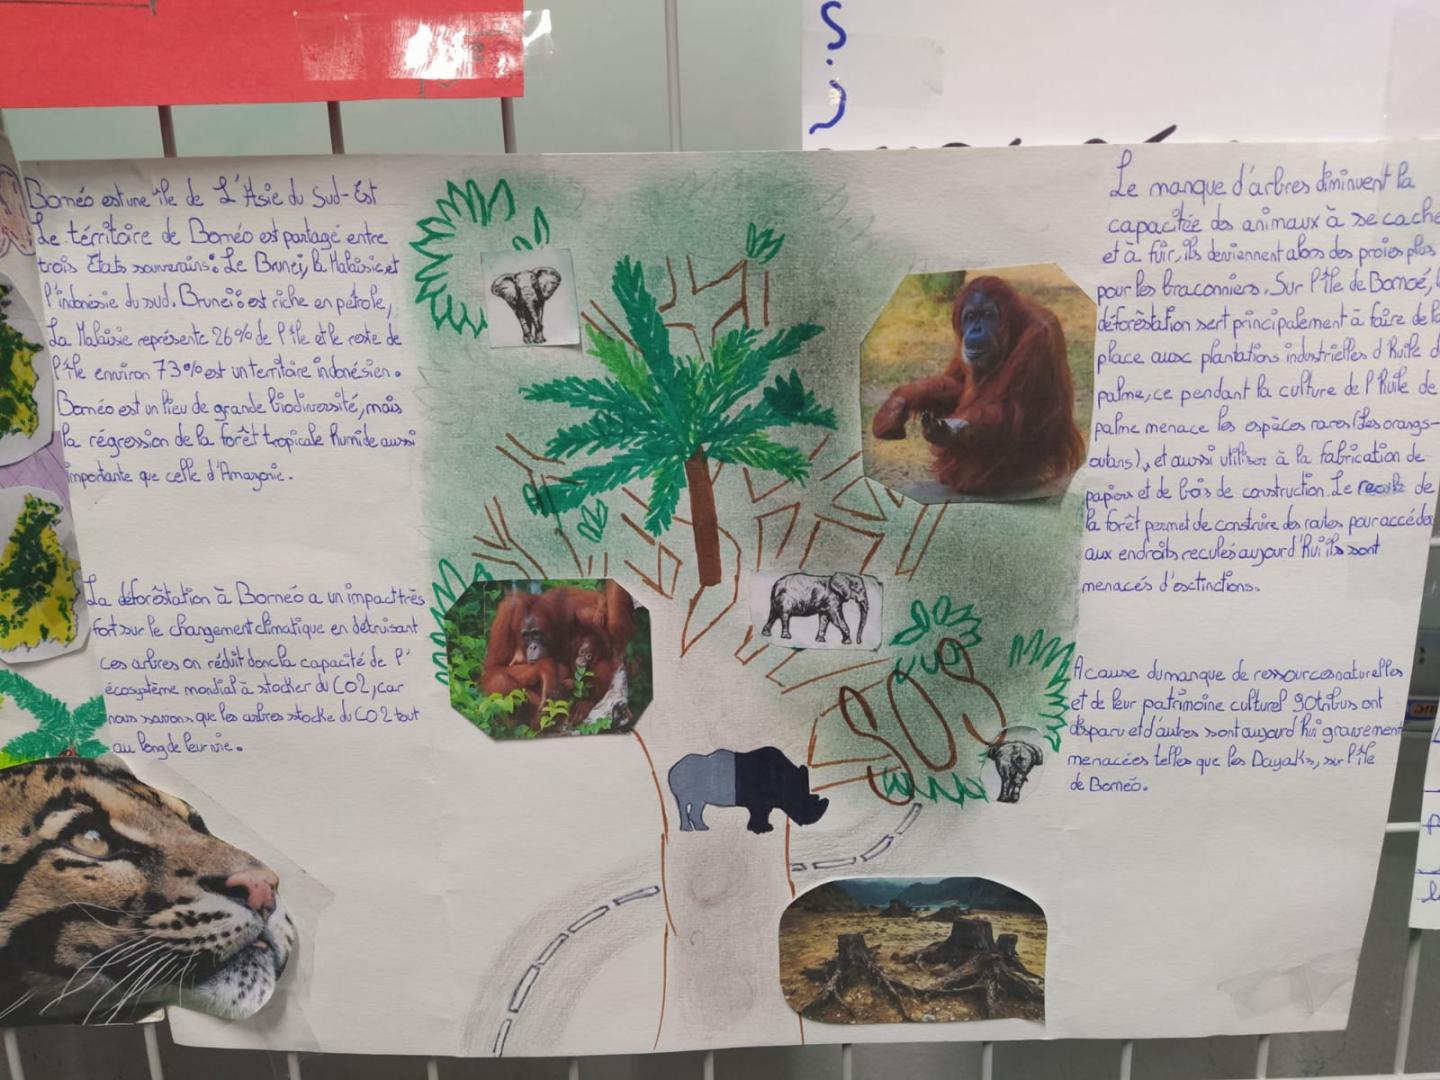 Bornéo est une île de L'Asie du Sud-Est
Le térritoire de Bornéo est partagé entre
trois Etats souverains: Le Brunei, la Malaisie et
l'indonésie du sud. Brunei: est riche en pétrole,
La Malaisie représente 26% de l'île et le reste de
l'île environ 73% est un territoire indonésien.
Bornéo est un lieu de grande biodiversité, mais
la régression de la forêt tropicale humide aussi
importante que celle d'Amazonie.
La déforêstation à Bornéo a un impact très
fort sur le changement climatique en détruisant
ces arbres on réduit donc la capacité de l'
écosystème mondial à stocker du CO2, car
nous savons que les arbres stocke du CO2 tout
au long de leur vie.
SOS
Le manque d'arbres diminuent la
capacitée des animaux à se cache
et à fuir, ils deviennent alors des proies plus
pour les braconniers. Sur l'île de Bornoé, l
déforêstation sert principalement à faire de la
place aux plantations industrielles d'huile d
palme, ce pendant la culture de l'huile de
palme menace les espèces rares (les orangs-
outans), et aussi utiliser à la fabrication de
papiers et de bois de construction. Le recule de
la forêt permet de construire des routes pour accéder
aux endroits reculés aujourd'hui ils sont
menacés d'exctinctions.
A cause du manque de ressources naturelles
et de leur patrimoine culturel 90 tribus ont
disparu et d'autres sont aujourd'hui gravement
menacées telles que les Dayaks, sur l'île
de Bornéo.